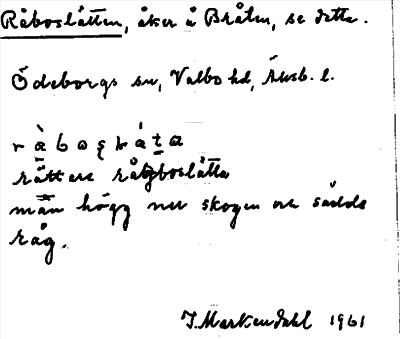 Råboslåtten, åker å Bråten, se detta.
Ödeborgs sn, Valbo hd, Älvsb. l.
rättare råg boslåtta
män högg ner skogen och sådde
råg.
J. Markendahl 1961